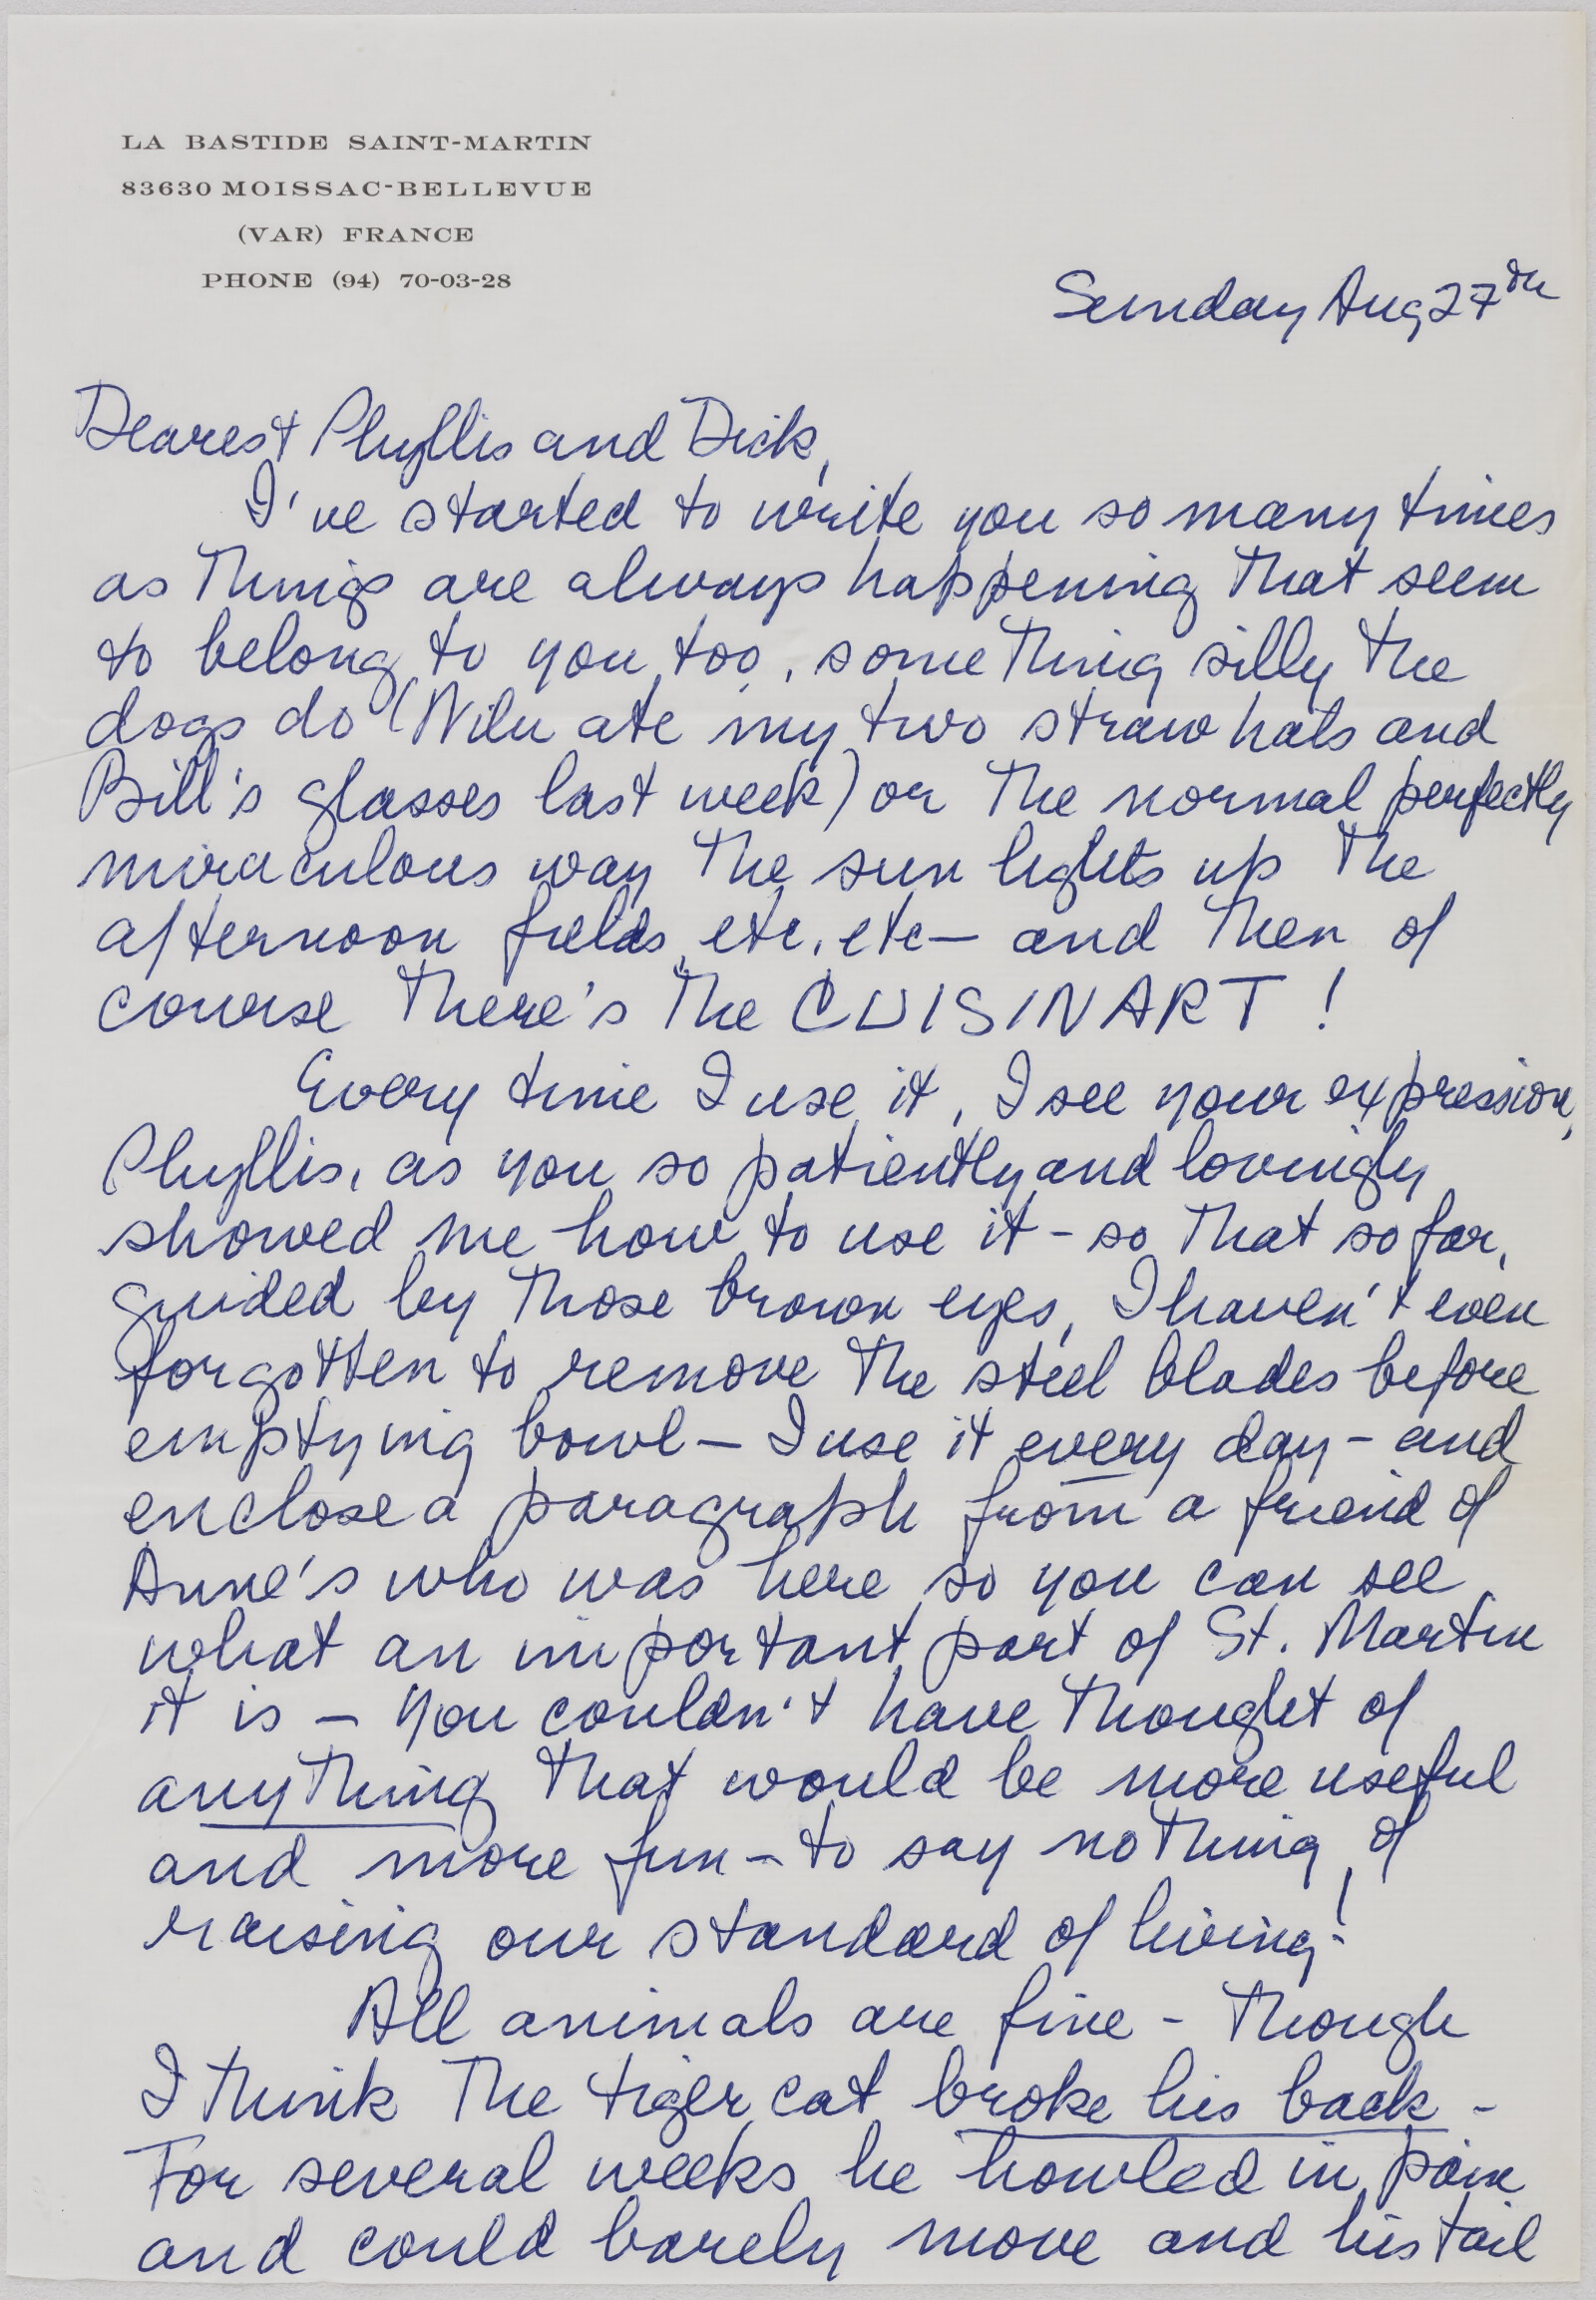 LA BASTIDE SAINT-MARTIN
83630 MOISSAC-BELLEVUE
(VAR) FRANCE
PHONE (94) 70-03-28
Sunday Aug 27th
Dearest Phyllis and Dick,
I've started to write you so many times
as things are always happening that seem
to belong to you too, something silly the
dogs do (Nilu ate my two straw hats and
Bill's glasses last week) or the normal perfectly
miraculous way the sun lights up the
afternoon fields, etc. etc — and then of
course there's the CUISINART!
Every time I use it, I see your expression,
Phyllis, as you so patiently and lovingly
showed me how to use it - so that so far,
guided by those brown eyes, I haven't even
forgotten to remove the steel blades before
emptying bowl — I use it every day - and
enclose a paragraph from a friend of
Anne's who was here so you can see
what an important part of St. Martin
it is — You couldn't have thought of
anything that would be more useful
and more fun - to say nothing of
raising our standard of living!
All animals are fine - though
I think the tiger cat broke his back -
For several weeks he howled in pain
and could barely move and his tail